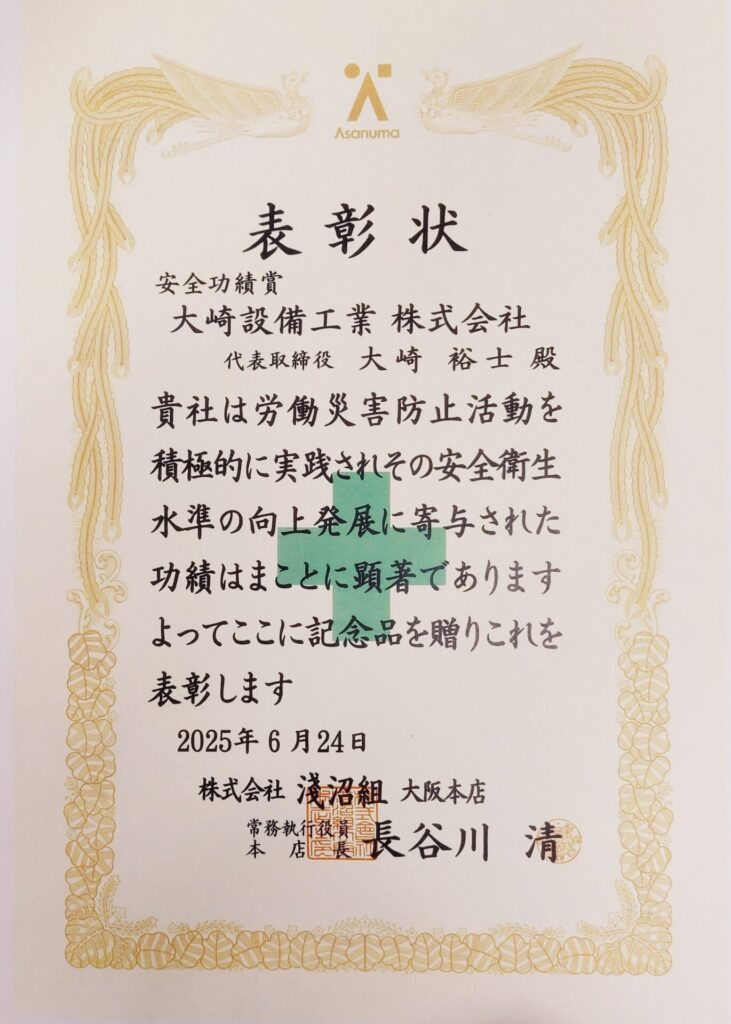 Asanuma
表彰状
安全功績賞
大崎設備工業 株式会社
代表取締役 大崎 裕士 殿
貴社は労働災害防止活動を
積極的に実践されその安全衛生
水準の向上発展に寄与された
功績はまことに顕著であります
よってここに記念品を贈りこれを
表彰します
2025年6月24日
株式会社 淺沼組 大阪本店
常務執行役員
本店長 長谷川 清